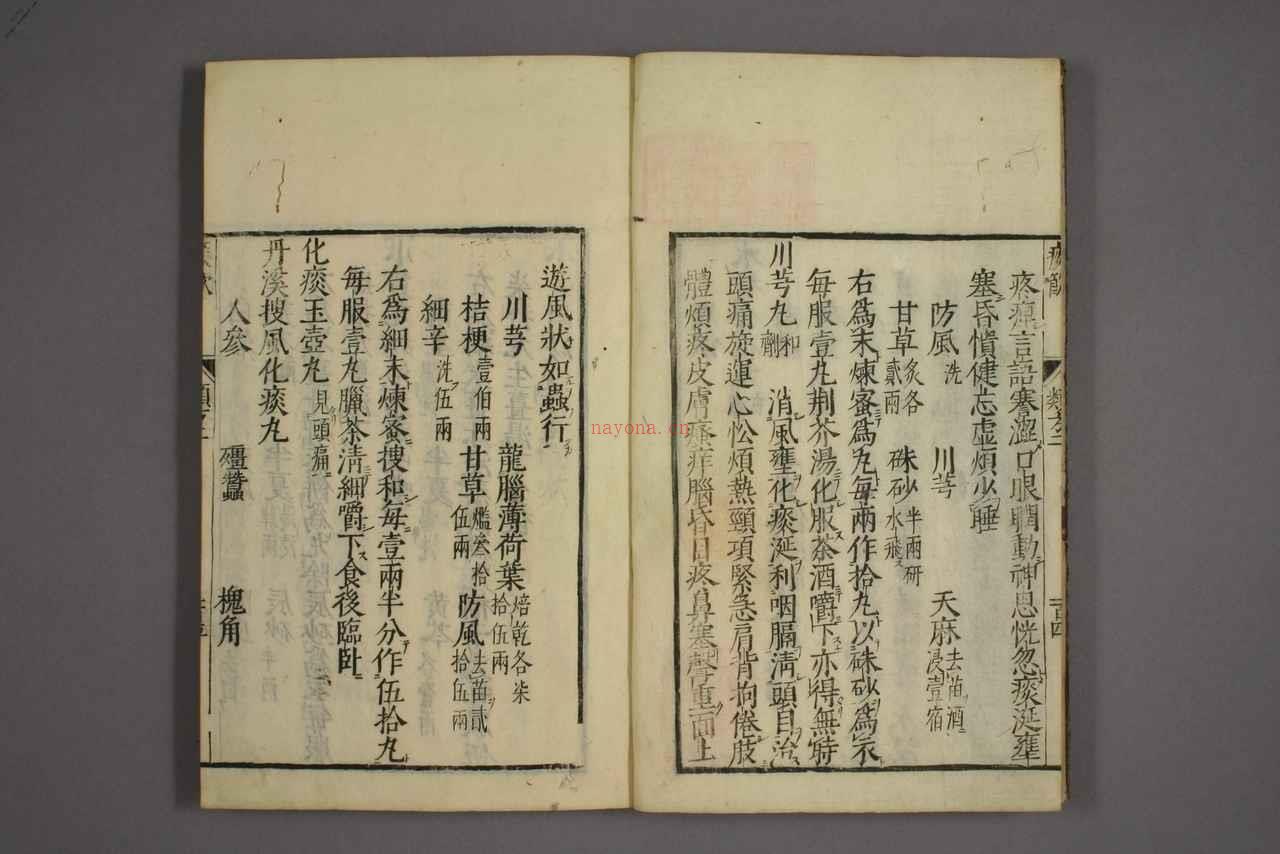 疼痺言語蹇澀口眼瞤動神思恍忽痰涎壅
塞昏憒健忘虛煩少睡
防風洗 川芎 天麻去苗酒浸壹宿
甘草炙各貳兩 硃砂半兩研水飛
右爲末煉蜜爲丸每兩作拾丸以硃砂爲衣
每服壹丸荆芥湯化服茶酒嚼下亦得無時
川芎丸和劑 消風壅化痰涎利咽膈淸頭目治
頭痛旋運心忪煩熱頸項緊急肩背拘倦肢
體煩疼皮膚瘙痒腦昏目疼鼻塞聲重面上
遊風狀如蟲行
川芎 龍腦薄荷葉焙乾各柒拾伍兩
桔梗壹伯兩 甘草爁叁拾伍兩 防風去苗貳拾伍兩
細辛洗伍兩
右爲細末煉蜜搜和每壹兩半分作伍拾丸
每服壹丸臘茶淸細嚼下食後臨卧
化痰玉壺丸見頭痛
丹溪搜風化痰丸
人參 殭蠶 槐角
nayona.cn